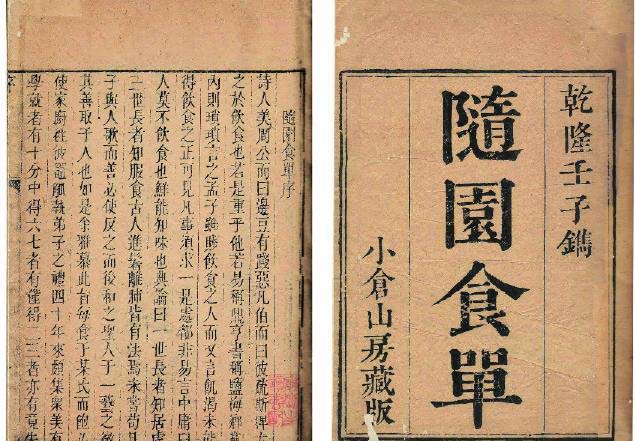 乾隆壬子鐫
隨園食單
小倉山房藏版
隨園食單序
詩人美周公而曰籩豆有踐惡凡伯而曰彼疏斯稗
之於飲食也若是重乎他若易稱鼎亨書稱鹽梅鄉
內則瑣瑣言之孟子雖賤飲食之人而又言飢渴未
得飲食之正可見凡事須求一是處都非易言中庸曰
人莫不飲食也鮮能知味也典論曰一世長者知居處
三世長者知服食古人進鬐離肺皆有法焉未嘗苟
子與人歌而善必使反之而後和之聖人于一藝之微
其善取于人也如是余雅慕此旨每食于某氏而飽
使家廚往彼竈觚執弟子之禮四十年來頗集眾美
學就者有十分中得六七者有僅得二三者亦有竟失